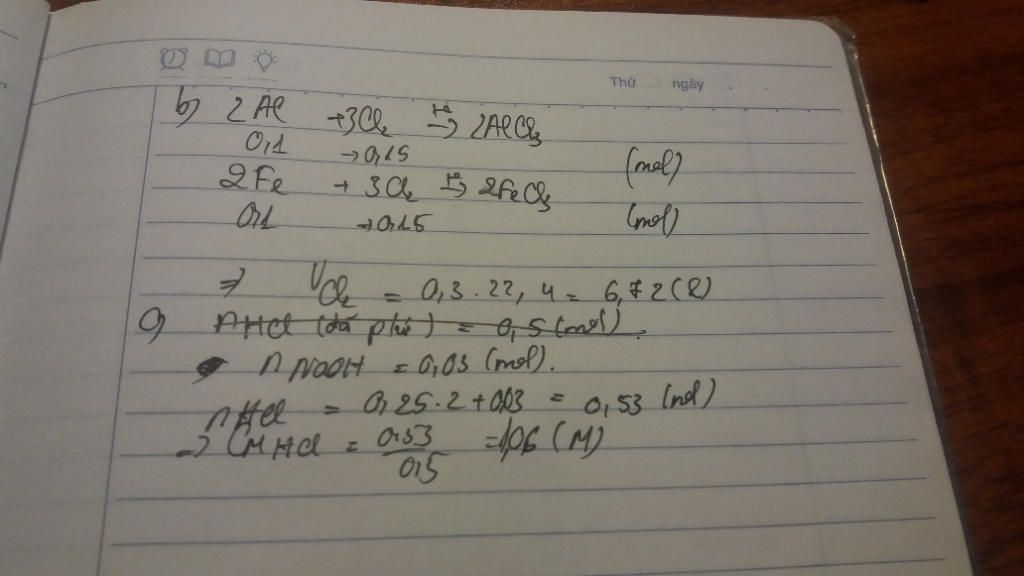 Thứ ngày
b) 2Al +3Cl₂ →(t°) 2AlCl₃
0,1 →0,15 (mol)
2Fe + 3Cl₂ →(t°) 2FeCl₃
0,1 →0,15 (mol)
=> VCl₂ = 0,3 . 22,4 = 6,72 (l)
c) nHCl (đã phứ) = 0,5 (mol).
n NaOH = 0,03 (mol).
nHCl = 0,25.2 + 0,03 = 0,53 (mol)
=> CM HCl = 0,53/0,5 = 1,06 (M)